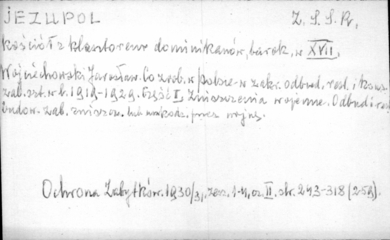 JEZUPOL Z.S.S.R.
kościół z klasztorem dominikanów, barok, w XVII.
Wojciechowski Jarosław. Co zrob. w Polsce w zakr. odbud., rest. i kons.
zab. szt. w l. 1919-1929. Część I, Zniszczenia wojenne. Odbud. i
budow. zab. zniszcz. lub uszkodz. przez wojnę.
Ochrona Zabytków. 1930/31, zesz. 1-4, cz. II. str. 243-318 (259).